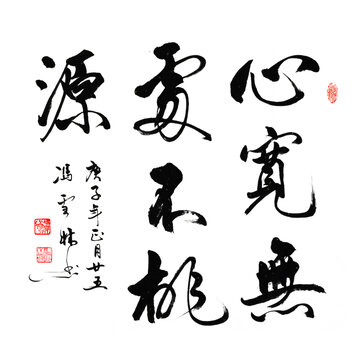 心寬無
處不桃
源
庚子年正月廿五
馮雪林书